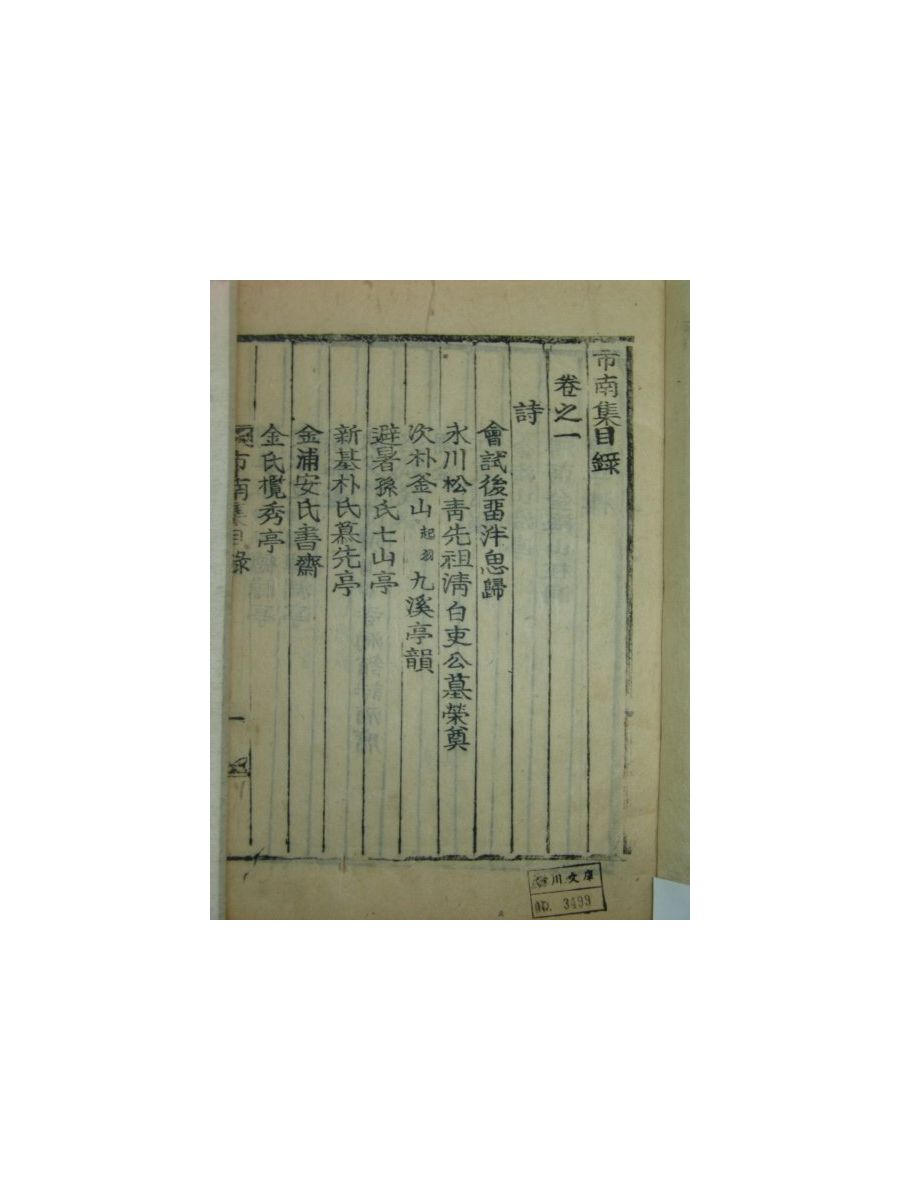 市南集目錄
卷之一
詩
會試後留泮思歸
永川松靑先祖淸白吏公墓榮奠
次朴釜山 起羽 九溪亭韻
避暑孫氏七山亭
新基朴氏慕先亭
金浦安氏書齋
金氏欖秀亭
市南集目錄
一
川文庫
NO. 3499